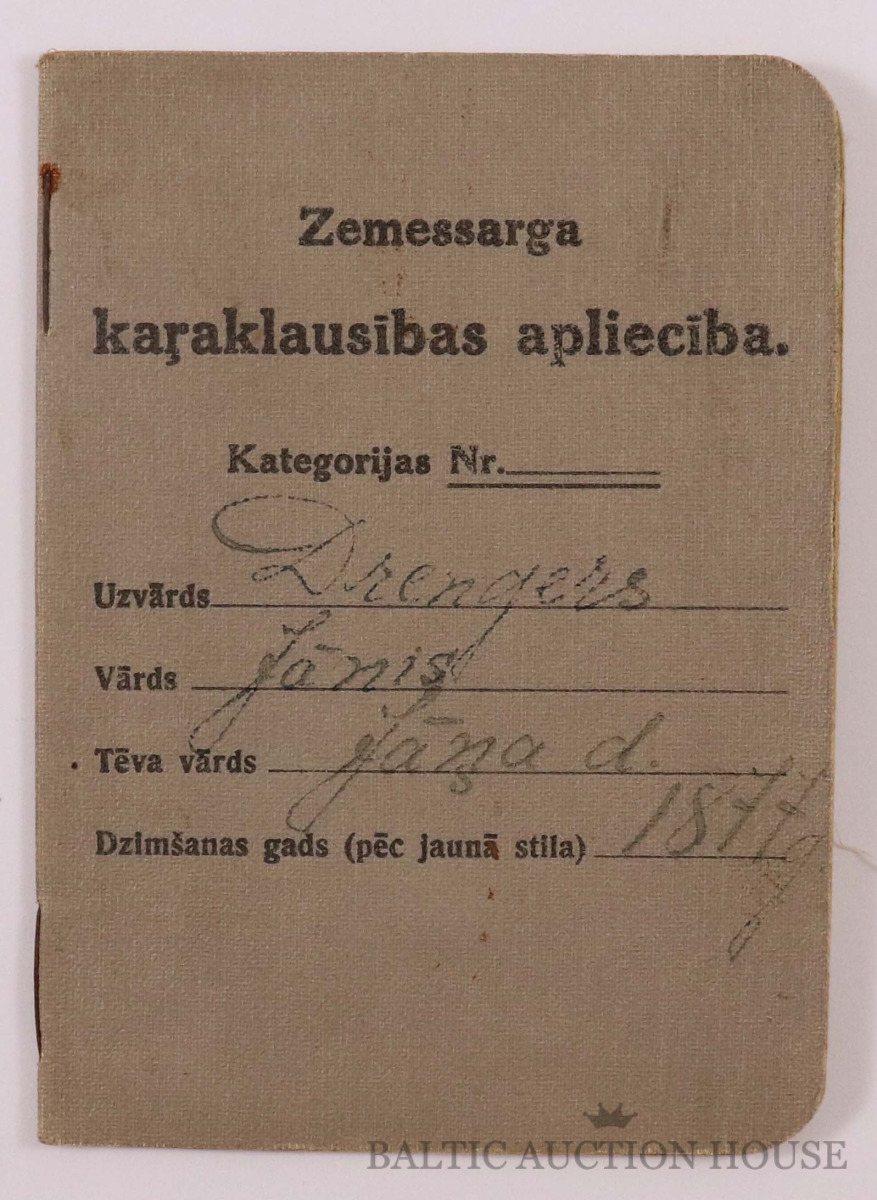 Zemessarga
kaŗaklausības apliecība.
Kategorijas Nr.
Uzvārds Drengers
Vārds Jānis
Tēva vārds Jāņa d.
Dzimšanas gads (pēc jaunā stila) 1877 g.
BALTIC AUCTION HOUSE